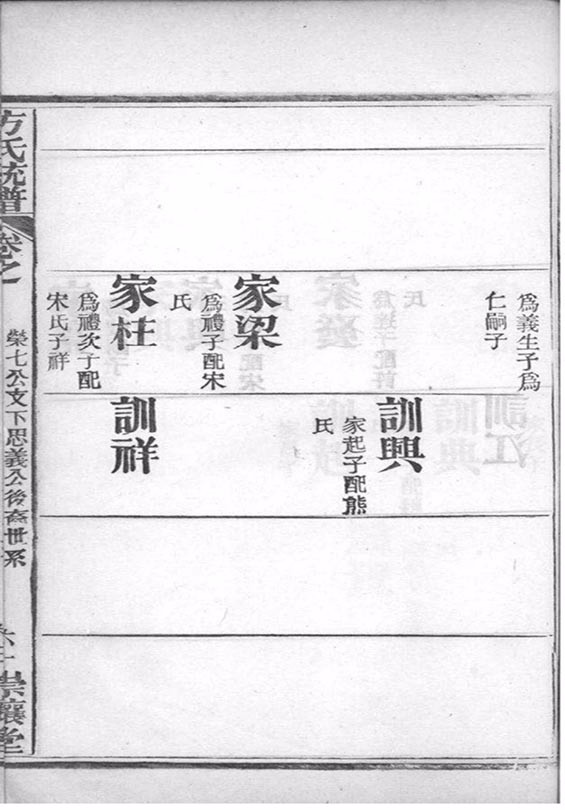 為義生子為
仁嗣子
訓江
訓興
家起子配熊
氏
家梁
為禮子配宋
氏
家柱
為禮次子配
宋氏子祥
訓祥
方氏統譜
卷之
榮七公支下思義公後裔世系
堂